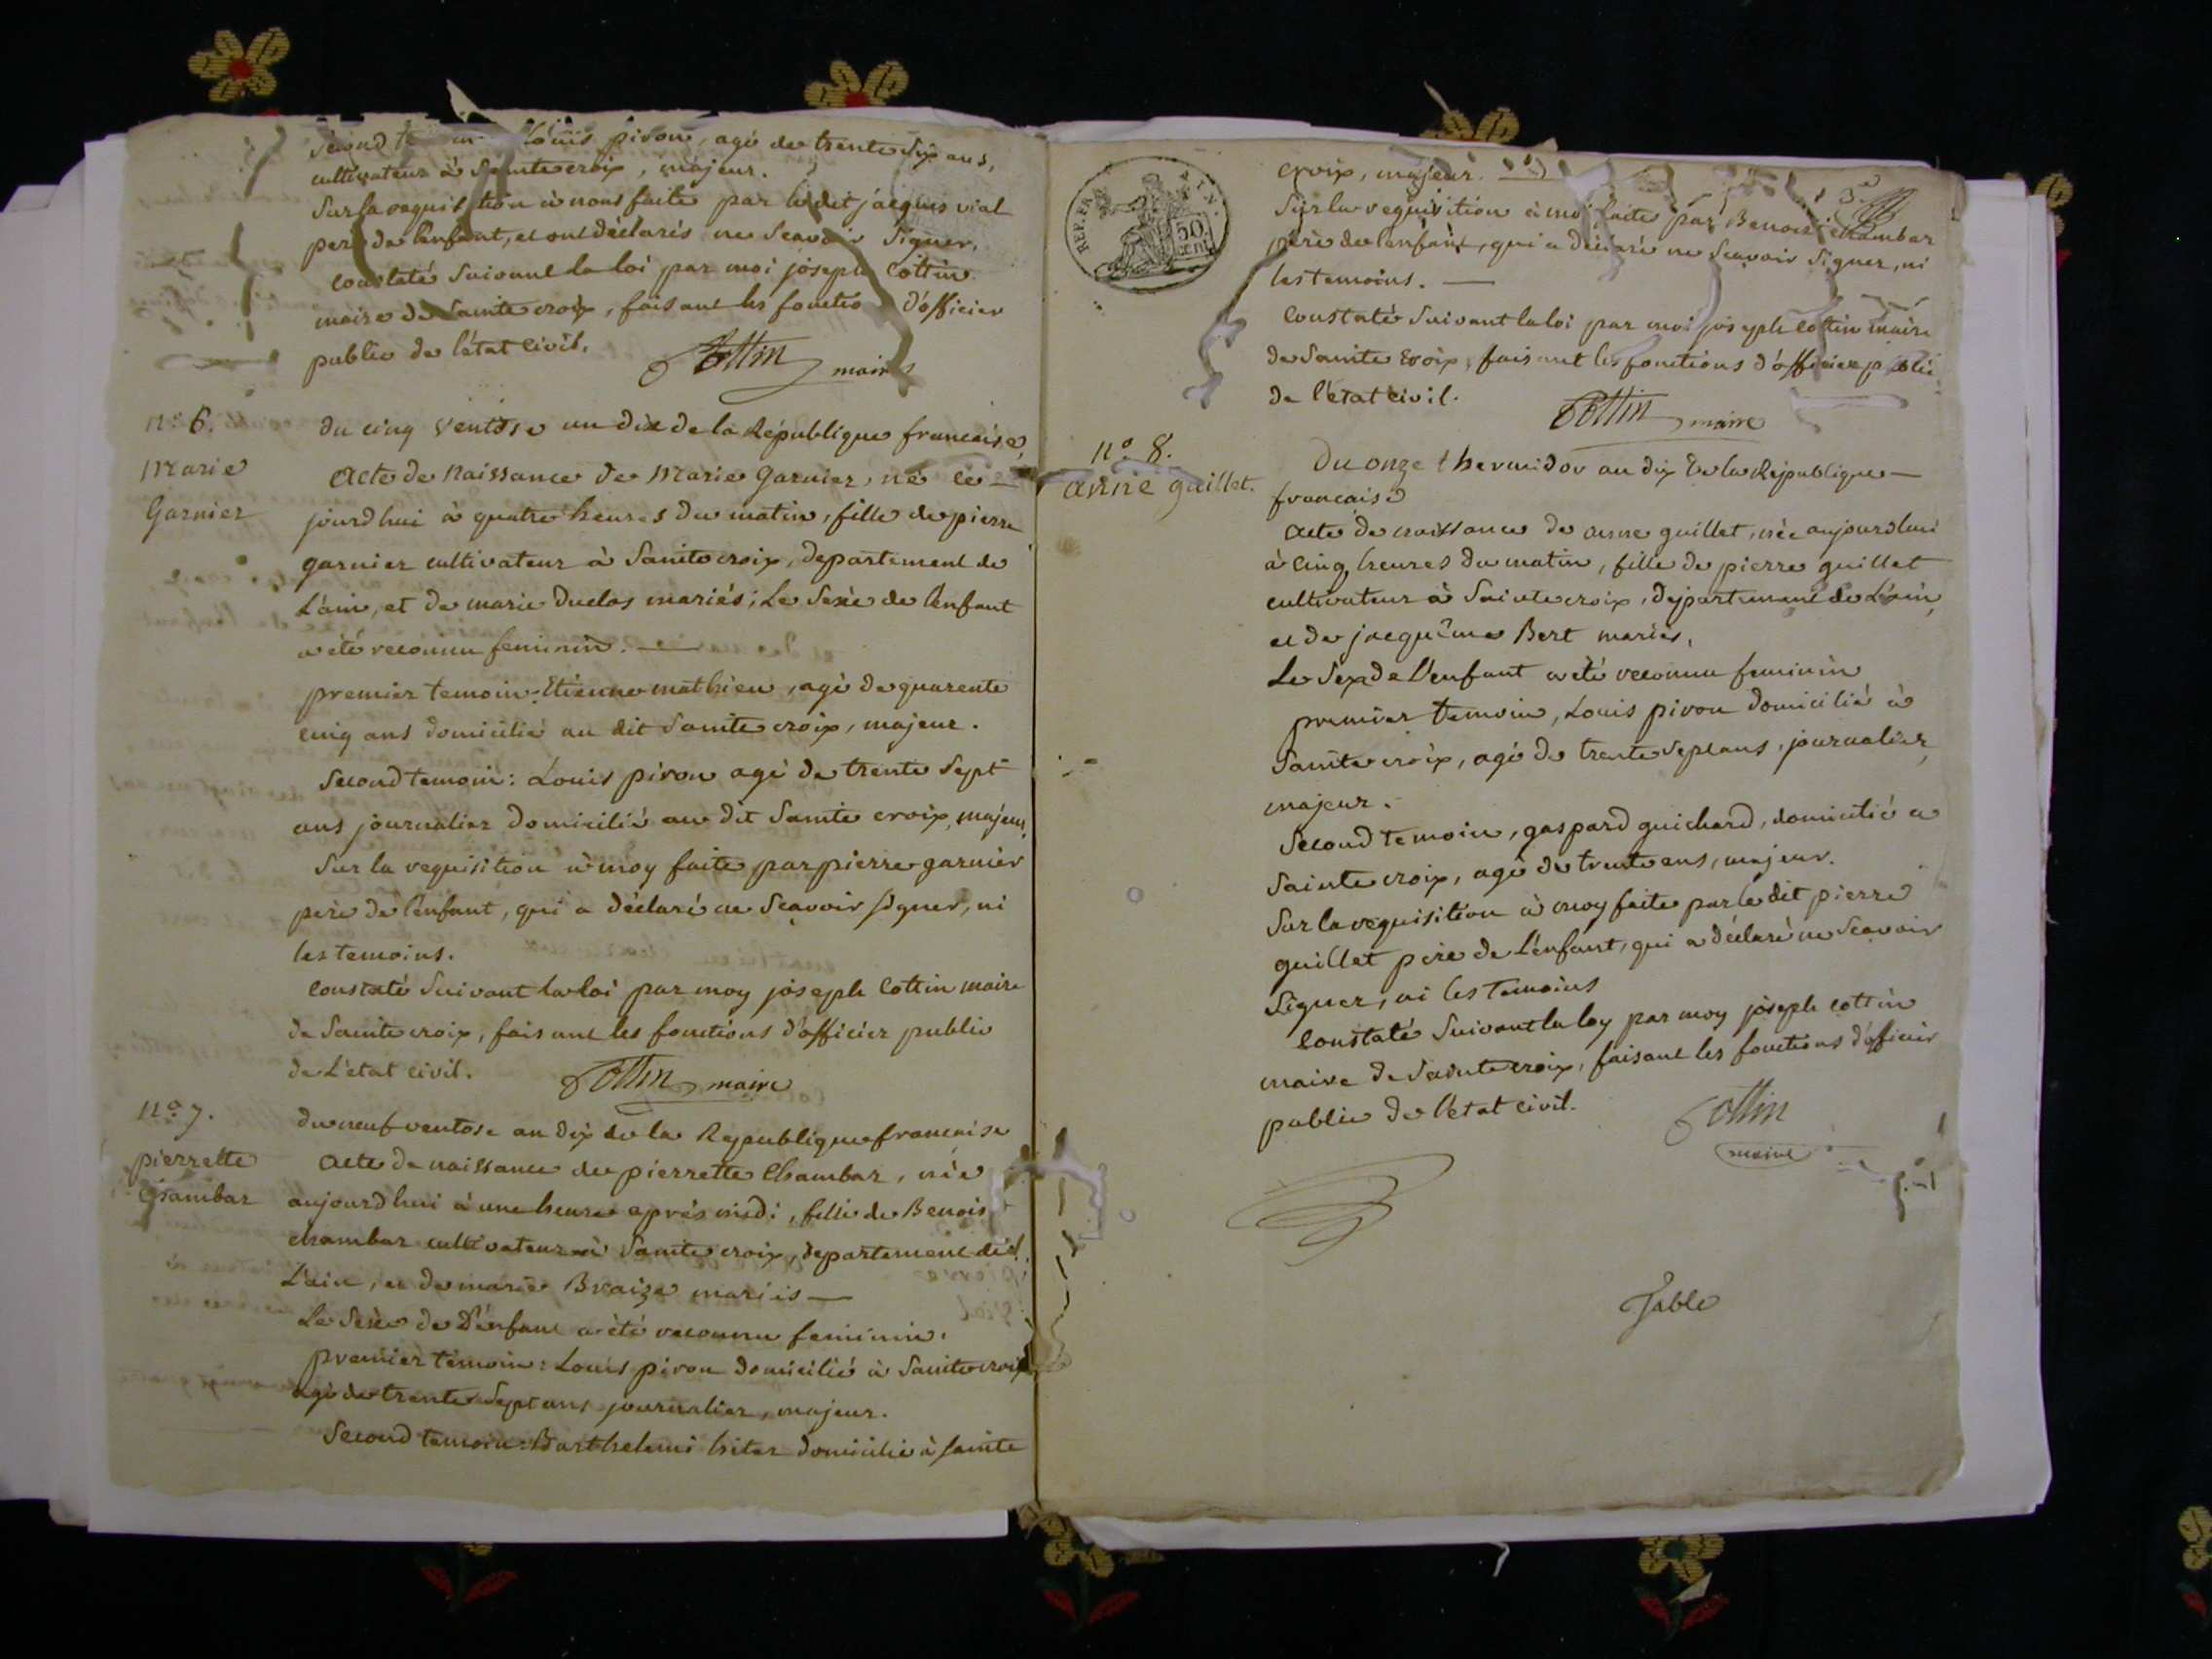 second Louis pivon, agé de trente six ans,
cultivateur à Sainte croix, majeur.
Sur la requisition à nous faite par le dit jacques vial
pere de l'enfant, et ont déclarés ne Scavoir Signer.
Constaté Suivant la loi par moi joseph Cottin
maire de Sainte croix, faisant les fonctio d'officier
public de l'état civil.
Cottin maire
n.º 6.
Marie
Garnier
du cinq Ventose an dix de la République francaise,
Acte de Naissance de Marie Garnier, né ce
jourdhui à quatre heures du matin, fille de pierre
garnier cultivateur à Sainte croix, departement de
L'ain, et de marie Duclos mariés; Le Sexe de l'enfant
a été reconnu feminin.
premier temoin: Etienne mathieu, agé de quarente
cinq ans domicilié au dit Sainte croix, majeur.
Second temoin: Louis pivon agé de trente Sept
ans journalier domicilié au dit Sainte croix, majeur,
Sur la requisition à moy faite par pierre garnier
pere de l'enfant, qui a déclaré ne Scavoir signer, ni
les temoins.
Constaté Suivant la loi par moy joseph Cottin maire
de Sainte croix, faisant les fonctions d'officier public
de L'état civil.
Cottin maire
n.º 7.
pierrette
Chambar
du neuf ventose an dix de la Republique francaise
Acte de naissance de pierrette Chambar, née
aujourdhui à une heure après midi, fille de Benois
chambar cultivateur à Sainte croix, departement de
L'ain, et de marie Braize mariés
Le Sexe de L'enfant a été reconnu feminin.
premier temoin: Louis pivon domicilié à Sainte croix
agé de trente Sept ans journalier, majeur.
Second temoin: Barthelemi hiter domicilié à Sainte
REP. FRA
50. cent
croix, majeur.
Sur la requisition à moi faite par Benois chambar
père de l'enfant, qui a déclaré ne Scavoir Signer, ni
les temoins.
Constaté Suivant la loi par moi joseph Cottin maire
de Sainte croix, faisant les fonctions d'officier public
de l'état civil.
Cottin maire
n.º 8.
anne guillet.
Du onze thermidor an dix de la République
francaise
Acte de naissance de anne guillet, née aujourdhui
à cinq heures du matin, fille de pierre guillet
cultivateur à Sainte croix, departement de L'ain,
et de jacquême Bert mariés,
Le Sexe de l'enfant a été reconnu feminin
premier temoin, Louis pivon domicilié à
Sainte croix, agé de trente sept ans, journalier,
majeur.
Second temoin, gaspard guichard, domicilié a
Sainte croix, agé de trente ans, majeur.
Sur la requisition à moy faite par le dit pierre
guillet pere de L'enfant, qui a déclaré ne Scavoir
Signer, ni les Temoins
Constaté Suivant la loy par moy joseph cottin
maire de Sainte croix, faisant les fonctions d'officier
public de l'état civil.
Cottin
maire
Table